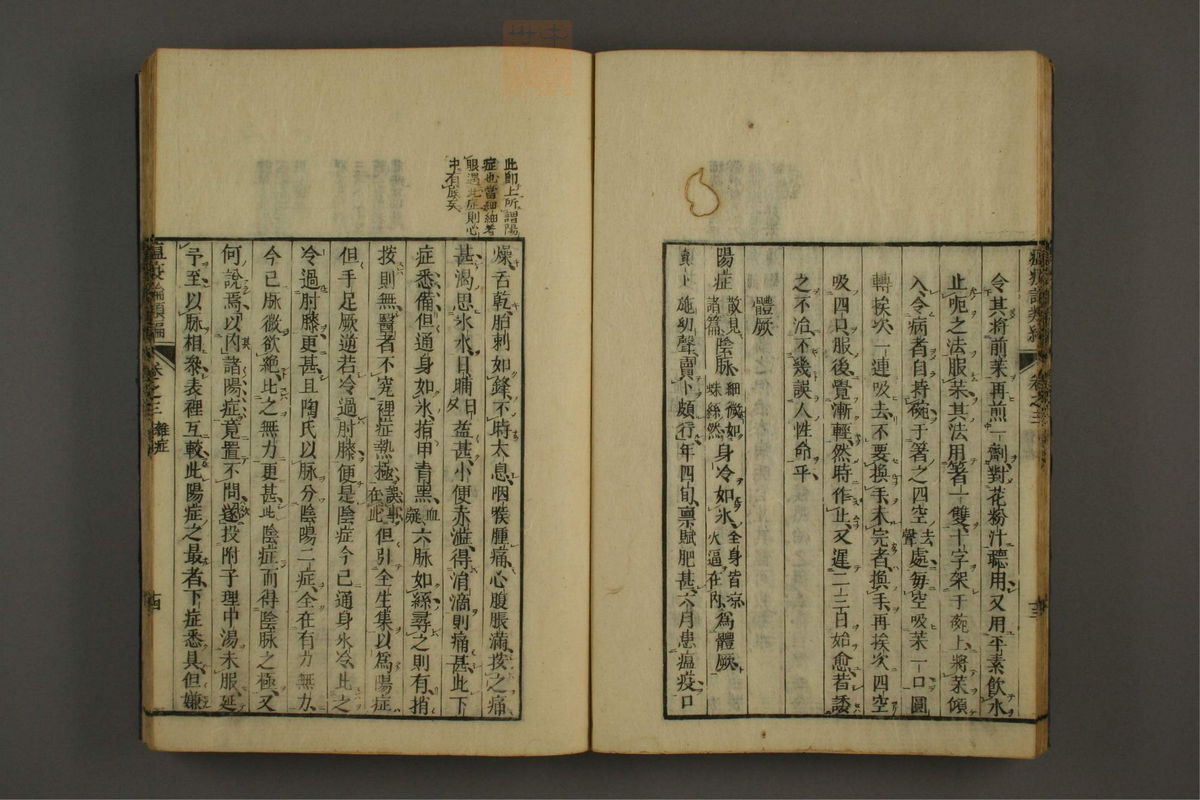 令其將前茱再煎一劑對花粉汁聽用又用平素飲水
止呃之法服茱其法用箸一雙十字架于碗上將茱傾
入令病者自持碗于箸之四空去聲處每空吸茱一口圓
轉挨次一連吸去不要換手未完者換手再挨次四空
吸四口服後覺漸輕然時作止又遲二三日始愈若諉
之不治不幾誤人性命乎
體厥
陽症散見諸篇陰脉細微如蛛絲然身冷如氷全身皆凉火逼在內為體厥
施幼聲賣卜頗行年四旬禀賦肥甚六月患瘟疫口
卷之三
此即上所謂陽
症也當細細着
眼遇此症則心
中有底矣
燥舌乾胎刺如鋒不時太息咽喉腫痛心腹脹滿按之痛
甚渴思氷水日晡益甚小便赤澁得涓滴則痛甚此下
症悉備但通身如氷指甲青黑血凝六脉如絲尋之則有捎
按則無醫者不究裡症熱極誤事在此但引全生集以為陽症
但手足厥逆若冷過肘膝便是陰症今已通身氷冷比之
冷過肘膝更甚且陶氏以脉分陰陽二症全在有力無力
今已脉微欲絕比之無力更甚此陰症而得陰脉之極又
何說焉以內諸陽症竟置不問遂投附子理中湯未服延
予至以脉相參表裡互較此陽症之最者下症悉具但嫌
瘟疫論類編
卷之三
雜症
十四